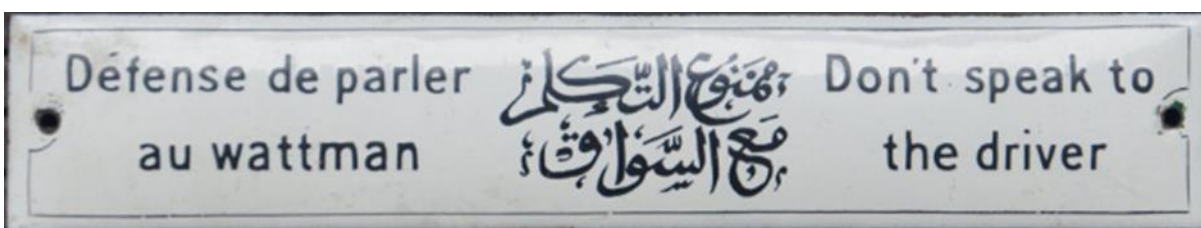 Défense de parler
au wattman
ممنوع التكلم
مع السواق
Don't speak to
the driver